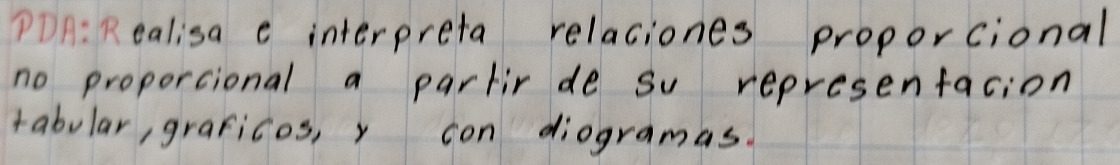 PDA: Realisa e interpreta relaciones proporcional
no proporcional a partir de su representacion
tabular, graficos, y con diogramas.